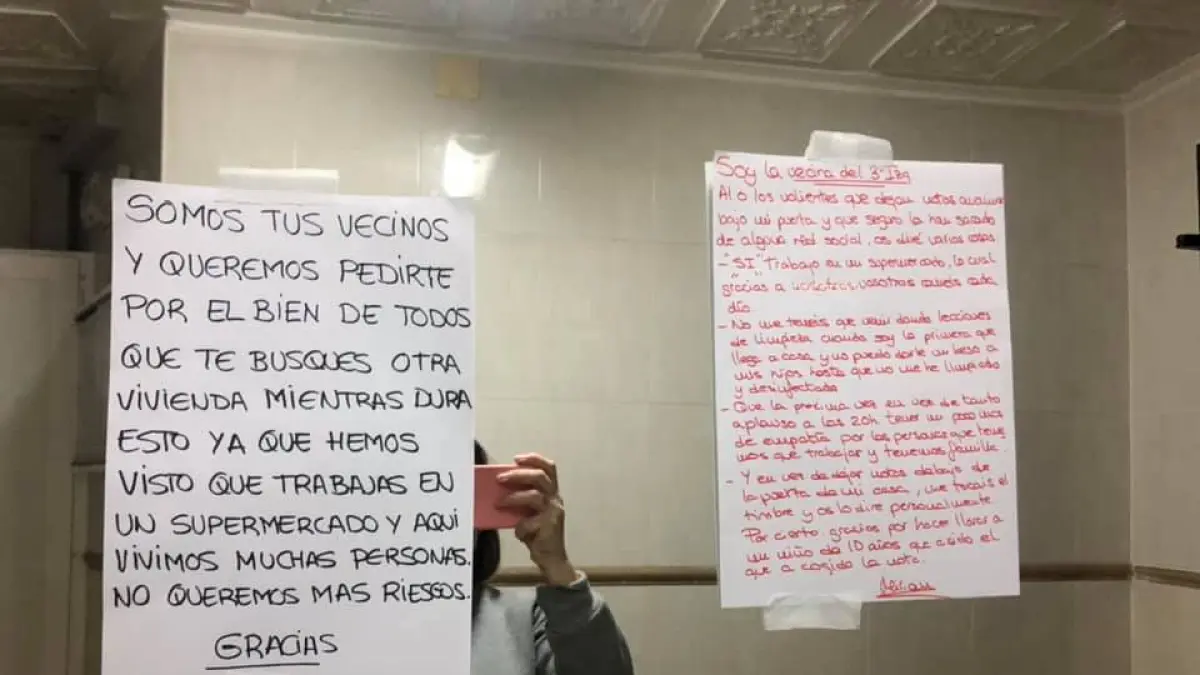 SOMOS TUS VECINOS
Y QUEREMOS PEDIRTE
POR EL BIEN DE TODOS
QUE TE BUSQUES OTRA
VIVIENDA MIENTRAS DURA
ESTO YA QUE HEMOS
VISTO QUE TRABAJAS EN
UN SUPERMERCADO Y AQUI
VIVIMOS MUCHAS PERSONAS.
NO QUEREMOS MAS RIESGOS.
GRACIAS
Soy la vecina del 3º Izq
Al o los valientes que dejan notas
bajo mi puerta y que seguro la han sacado
de alguna red social, os diré varias cosas
- "SI" Trabajo en un supermercado, lo cual
gracias a vosotros coméis cada
día
- No me tenéis que venir dando lecciones
de limpieza cuando soy la primera que
llega a casa y no puedo darle un beso a
mis hijos hasta que no me he limpiado
y desinfectado
- Que la próxima vez en vez de tanto
aplauso a las 20h tener un poco mas
de empatía por las personas que tene
mos que trabajar y tenemos familia.
- Y en vez de dejar notas debajo de
la puerta de mi casa, me tocais el
timbre y os lo dire personalmente
Por cierto gracias por hacer llorar a
un niño de 10 años que a sido el
que a cogido la nota.
Miriam